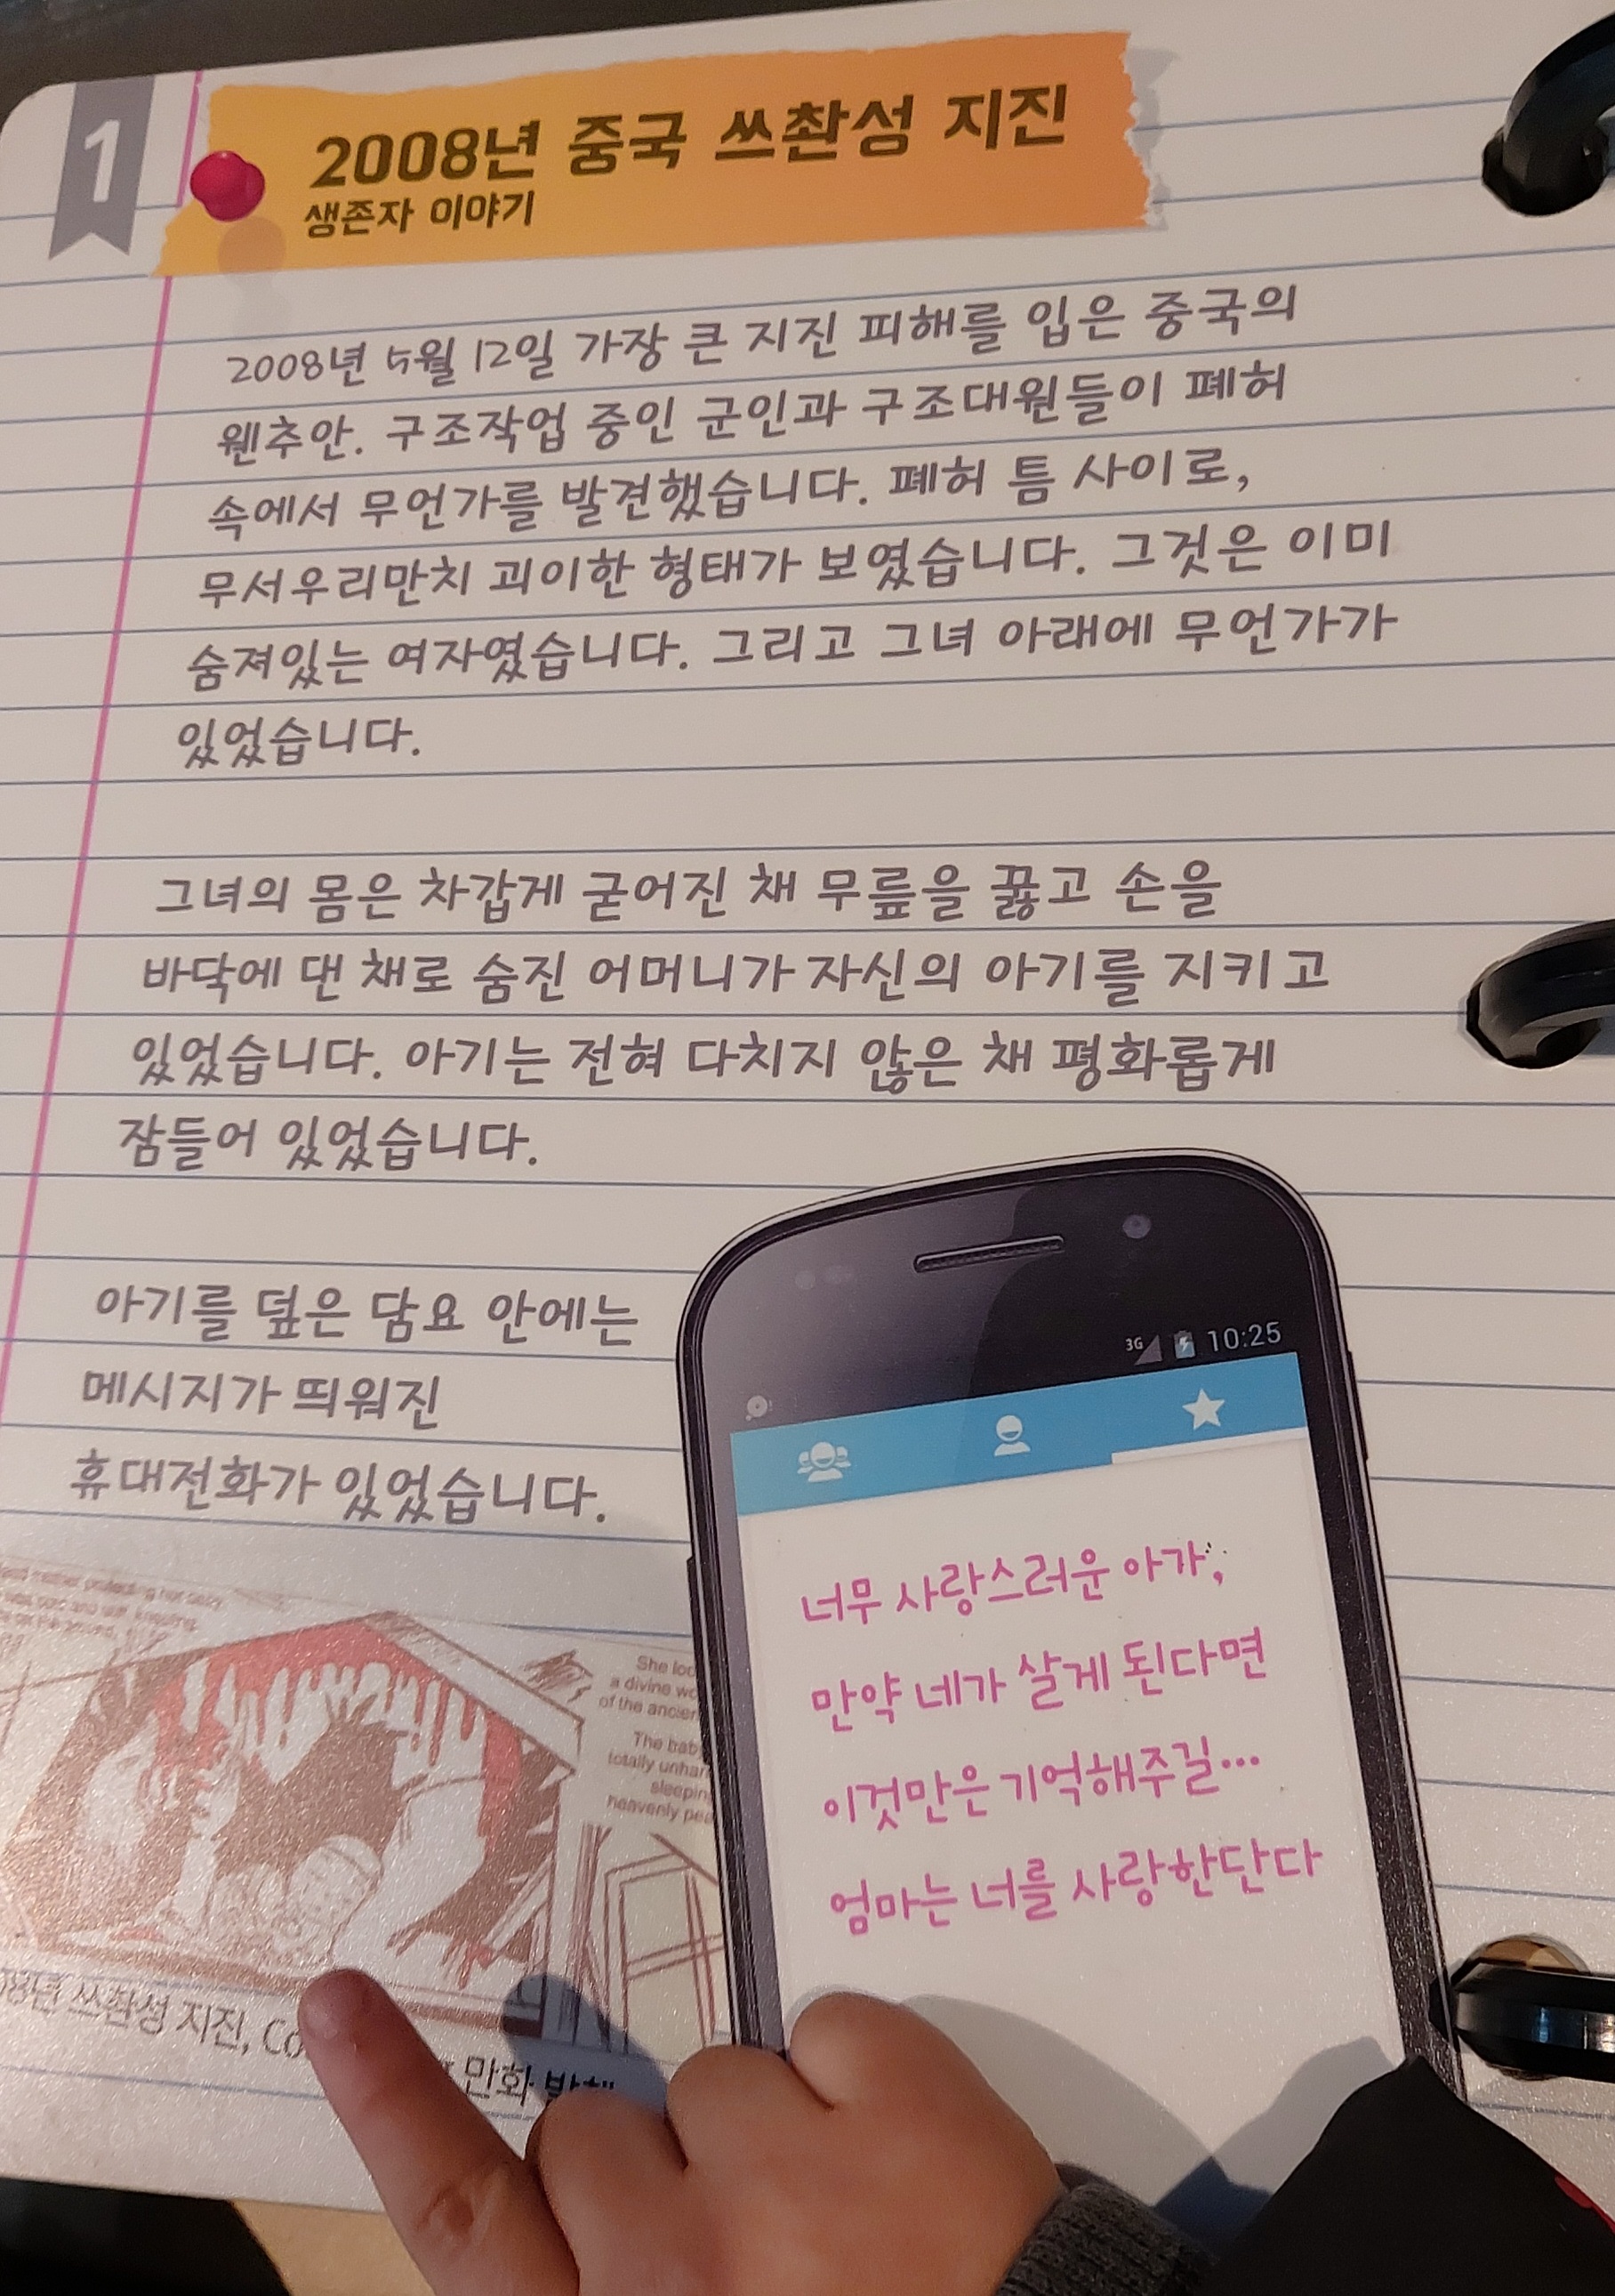 1
2008년 중국 쓰촨성 지진
생존자 이야기
2008년 5월 12일 가장 큰 지진 피해를 입은 중국의
웬추안. 구조작업 중인 군인과 구조대원들이 폐허
속에서 무언가를 발견했습니다. 폐허 틈 사이로,
무서우리만치 괴이한 형태가 보였습니다. 그것은 이미
숨져있는 여자였습니다. 그리고 그녀 아래에 무언가가
있었습니다.
그녀의 몸은 차갑게 굳어진 채 무릎을 꿇고 손을
바닥에 댄 채로 숨진 어머니가 자신의 아기를 지키고
있었습니다. 아기는 전혀 다치지 않은 채 평화롭게
잠들어 있었습니다.
아기를 덮은 담요 안에는
메시지가 띄워진
휴대전화가 있었습니다.
3G 10:25
너무 사랑스러운 아가,
만약 네가 살게 된다면
이것만은 기억해주길...
엄마는 너를 사랑한단다
mother protecting her baby
was cold and stiff, kneeling
on the ground,
She
a divine
of the
The
totally
heavenly
쓰촨성 지진,
만화